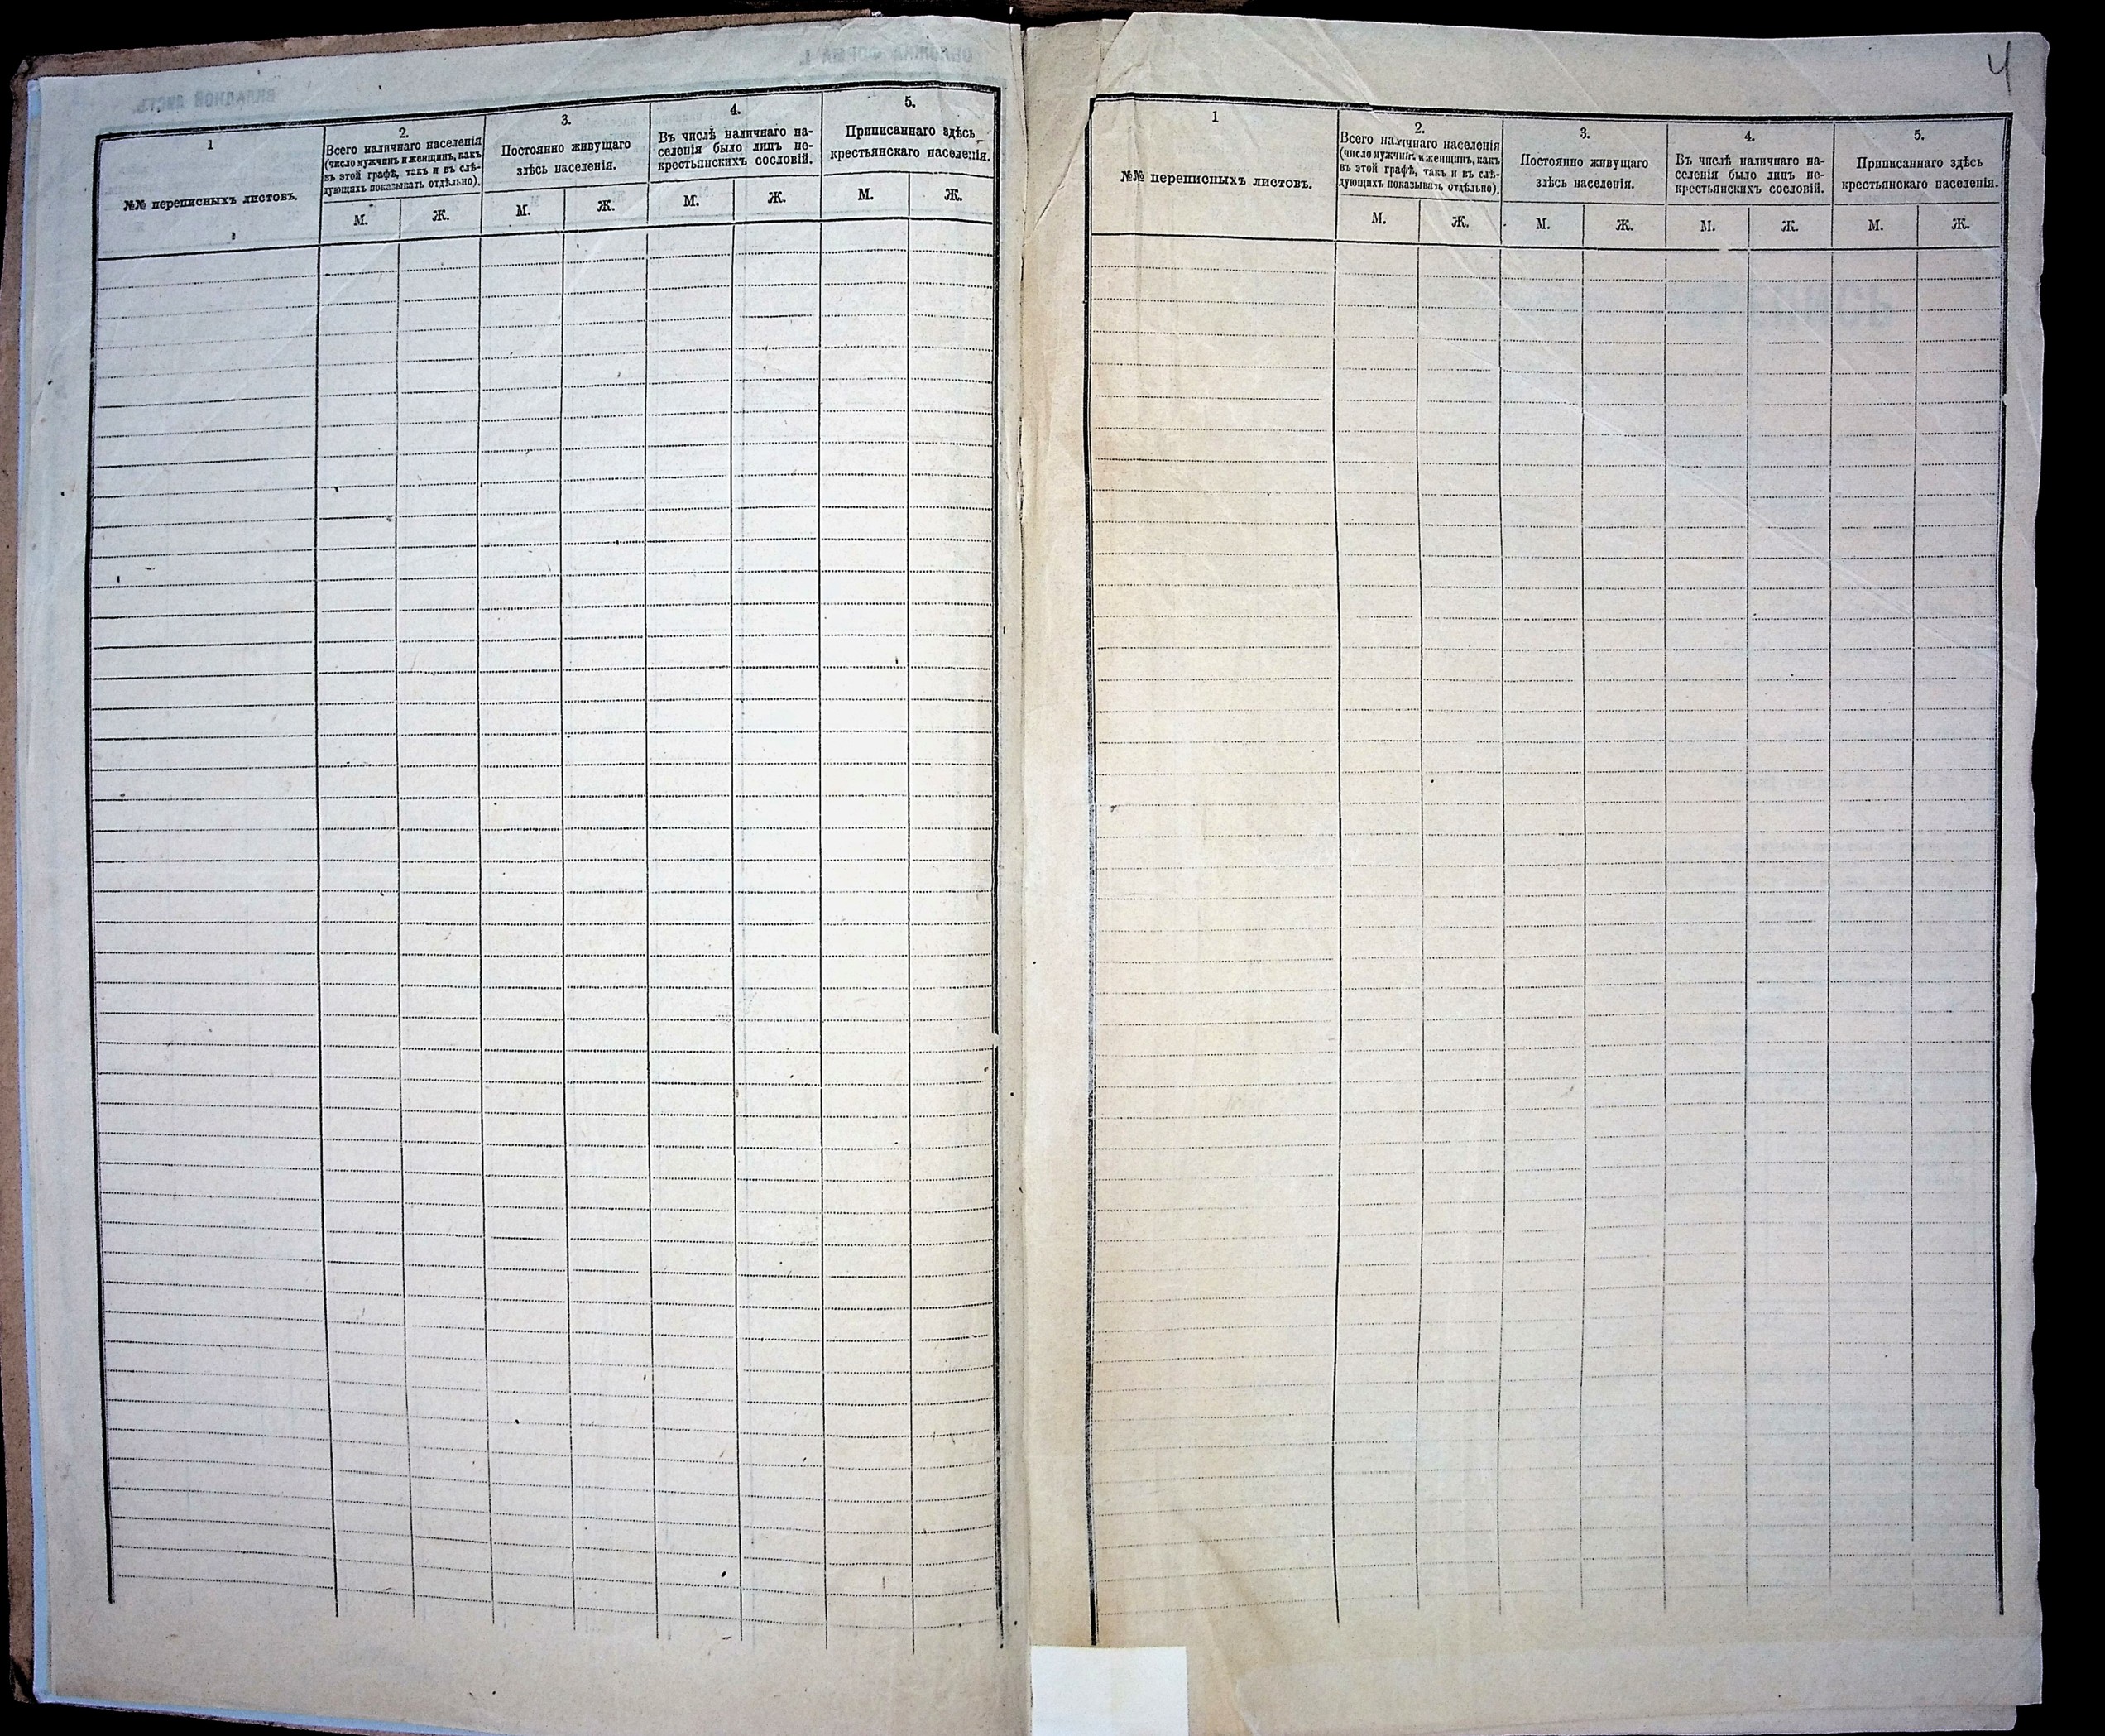 1
№№ переписныхъ листовъ.
2.
Всего наличнаго населенія
(число мужчинъ и женщинъ, какъ
въ этой графѣ, такъ и въ слѣ-
дующихъ показывать отдѣльно).
М. Ж.
3.
Постоянно живущаго
здѣсь населенія.
М. Ж.
4.
Въ числѣ наличнаго на-
селенія было лицъ не-
крестьянскихъ сословій.
М. Ж.
5.
Приписаннаго здѣсь
крестьянскаго населенія.
М. Ж.
4
1
№№ переписныхъ листовъ.
2.
Всего наличнаго населенія
(число мужчинъ и женщинъ, какъ
въ этой графѣ, такъ и въ слѣ-
дующихъ показывать отдѣльно).
М. Ж.
3.
Постоянно живущаго
здѣсь населенія.
М. Ж.
4.
Въ числѣ наличнаго на-
селенія было лицъ не-
крестьянскихъ сословій.
М. Ж.
5.
Приписаннаго здѣсь
крестьянскаго населенія.
М. Ж.